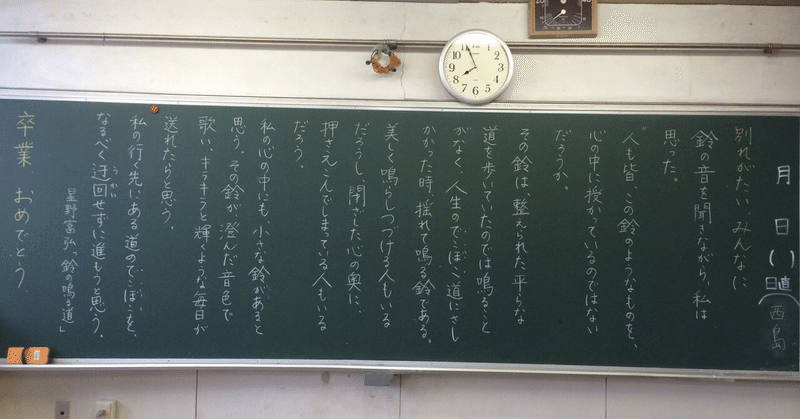 月 日( )
日直(西島
別れがたい みんなに
鈴の音を聞きながら、私は
思った。
人も皆、この鈴のようなものを、
心の中に授かっているのではない
だろうか。
その鈴は、整えられた平らな
道を歩いていたのでは鳴ること
がなく、人生のでこぼこ道にさし
かかった時、揺れて鳴る鈴である。
美しく鳴らしつづける人もいる
だろうし、閉ざした心の奥に、
押さえこんでしまっている人もいる
だろう。
私の心の中にも、小さな鈴があると
思う。その鈴が、澄んだ音色で
歌い、キラキラと輝くような毎日が
送れたらと思う。
私の行く先にある道のでこぼこを、
なるべく迂回せずに進もうと思う。
うかい
星野富弘「鈴の鳴る道」
卒業 おめでとう
12
1
2
3
4
5
6
7
8
9
10
11